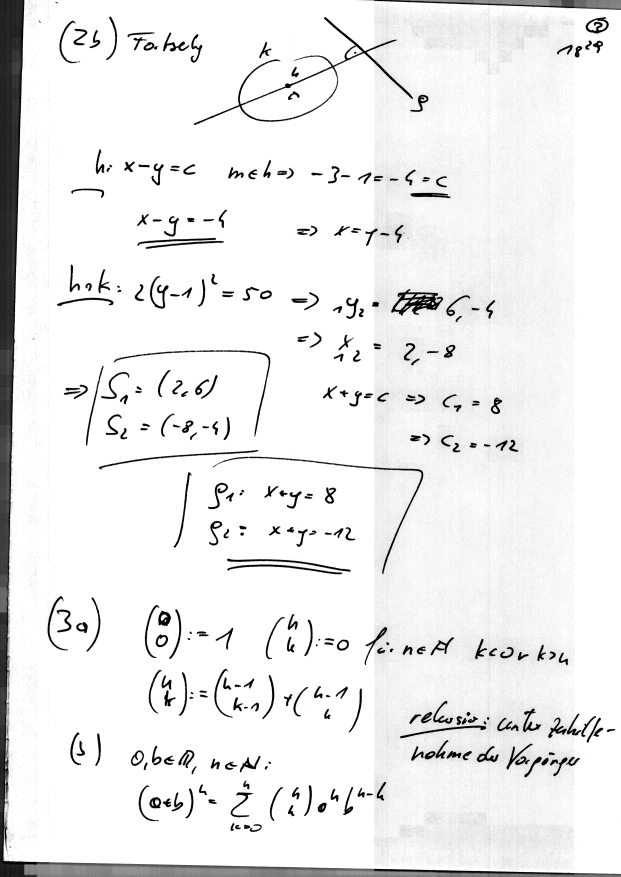 (2b)
②
18²⁹
k
M
g
h: x-y=c m∈h => -3-1=-4=c
x-y=-4 => x=y-4
h∩k: 2(y-1)²=50 => ₁y₂ = 6,-4
=> x₁₂ = 2,-8
=> S₁ = (2,6) x+y=c => c₁ = 8
S₂ = (-8,-4) => c₂ = -12
g₁: x+y= 8
g₂: x+y=-12
(3a) (0 0):=1 (n k):=0 für n∈ℕ k<0 ∨ k>n
(n k):=(n-1 k-1)+(n-1 k)
rekursiv: unter Zuhilfe-
nahme der Vorgänger
(b) a,b∈ℝ, n∈ℕ:
(a+b)ⁿ= Σ k=0 n (n k) aᵏ bⁿ⁻ᵏ